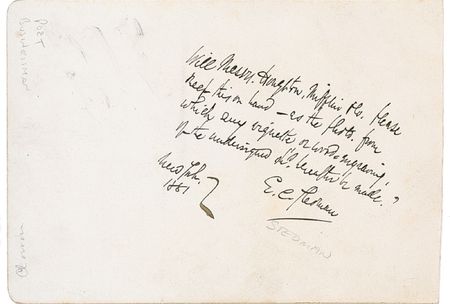 Will Messrs. Houghton, Mifflin & Co. please
keep this on hand — as the photo. from
which any vignette or wood-engraving,
of the undersigned sh'd hereafter be made?
New York.
1881
E. C. Stedman
STEDMAN
POET